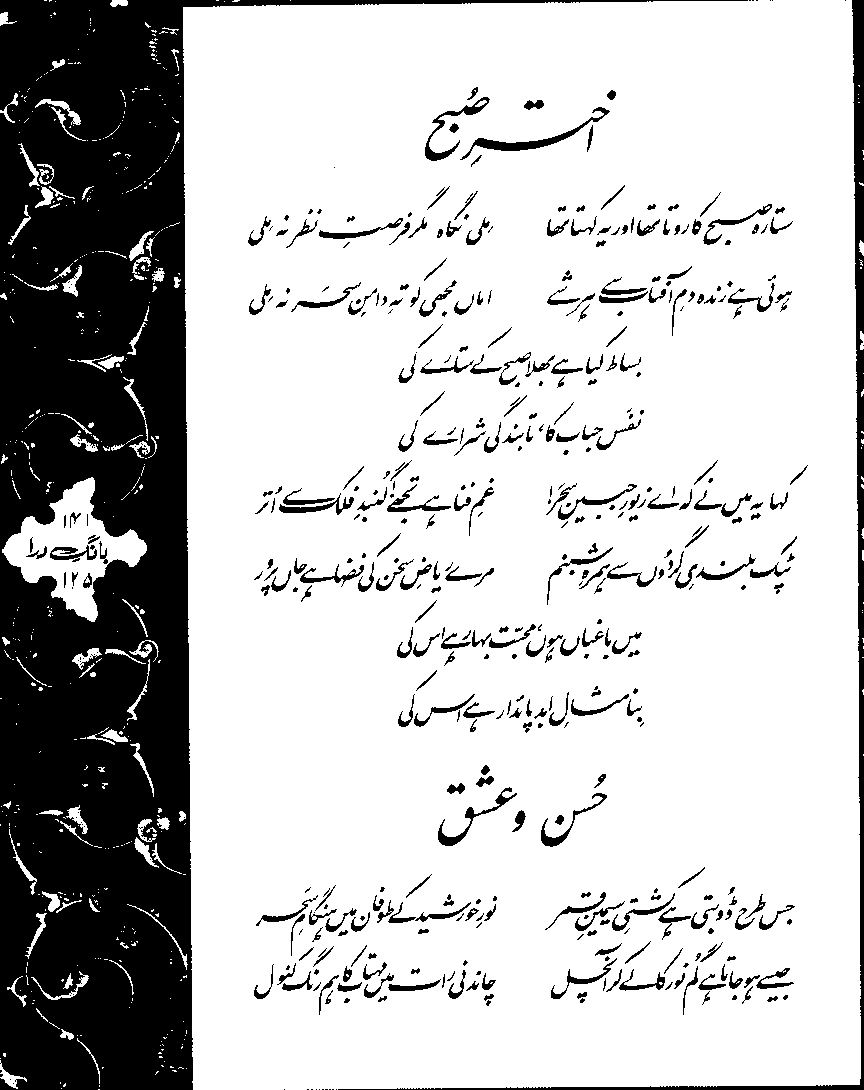 اخترِ صُبح
ستارہ صبح کا روتا تھا اور یہ کہتا تھا مِلی نگاہ مگر فرصتِ نظر نہ مِلی
ہوئی ہے زندہ دمِ آفتاب سے ہر شے اماں مجھی کو تہِ دامنِ سحَر نہ مِلی
بساط کیا ہے بھلا صبح کے ستارے کی
نفَس حباب کا، تابندگی شرارے کی
کہا یہ میں نے کہ اے زیورِ جبینِ سحَر! غمِ فنا ہے تجھے! گُنبدِ فلک سے اُتر
ٹپک بلندیِ گردُوں سے ہمرہِ شبنم مرے ریاضِ سخن کی فضا ہے جاں پرور
میں باغباں ہوں، محبّت بہار ہے اس کی
بِنا مثالِ ابد پائدار ہے اس کی
۱۴۱
بانگِ درا
۱۲۵
حُسن و عشق
جس طرح ڈُوبتی ہے کشتیِ سیمینِ قمر نورِ خورشید کے طوفان میں ہنگامِ سحَر
جیسے ہو جاتا ہے گُم نور کا لے کر آنچل چاندنی رات میں مہتاب کا ہم رنگ کنول